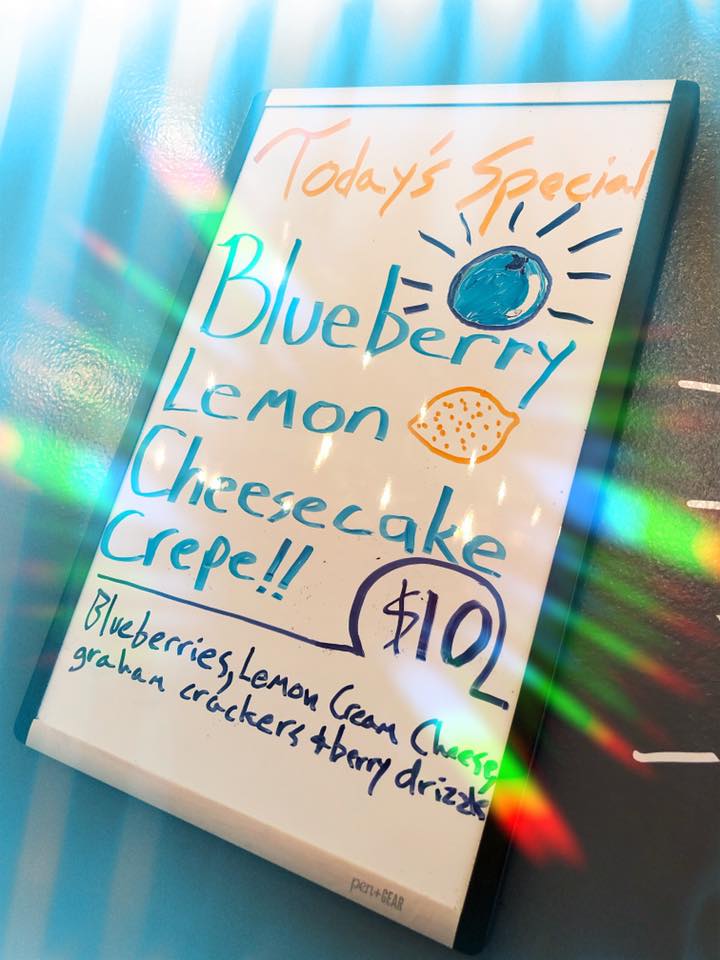 Today's Special
Blueberry
Lemon
Cheesecake
Crepe!!
$10
Blueberries, Lemon Cream Cheese,
graham crackers + berry drizzle
pen+GEAR